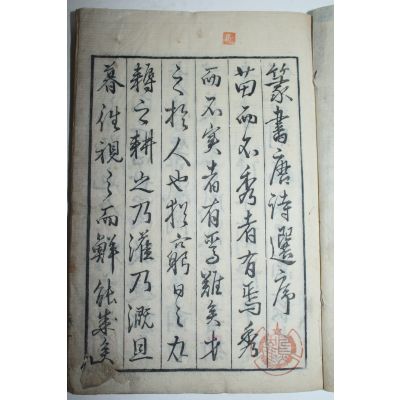 篆書唐詩選序
苗而不秀者有焉秀
而不実者有焉難矣才
之於人也猶農日之力
耨之耕之乃灌乃漑且
暮往視之而鮮能成矣